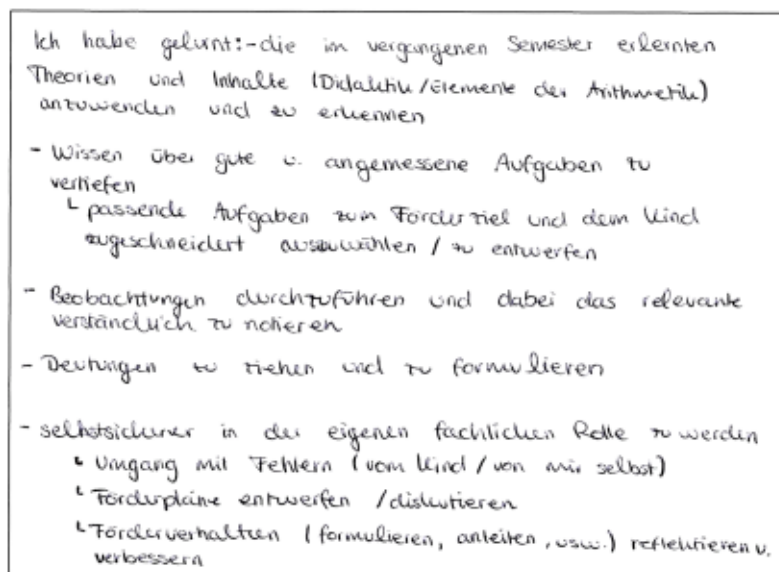 Ich habe gelernt:-die im vergangenen Semester erlernten
Theorien und Inhalte (Didaktik/Elemente der Arithmetik)
anzuwenden und zu erkennen
- Wissen über gute u. angemessene Aufgaben zu
vertiefen
└ passende Aufgaben zum Förderziel und dem Kind
zugeschneidert auszuwählen / zu entwerfen
- Beobachtungen durchzuführen und dabei das relevante
verständlich zu notieren
- Deutungen zu ziehen und zu formulieren
- selbstsicherer in der eigenen fachlichen Rolle zu werden
└ Umgang mit Fehlern (vom Kind / von mir selbst)
└ Förderpläne entwerfen / diskutieren
└ Förderverhalten (formulieren, anleiten, usw.) reflektieren u.
verbessern